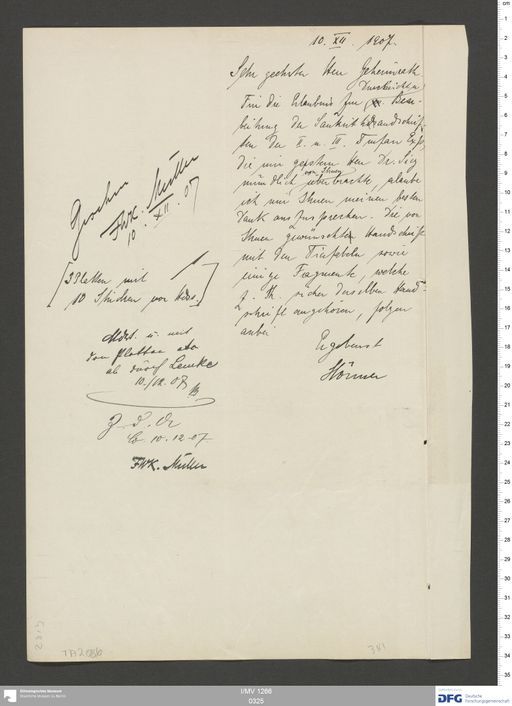 10. XII. 1907.
Sehr geehrter Herr Geheimrath
Für die Erlaubnis zur Durchsicht u. Bear-
beitung der Sanskrithandschrif-
ten der I. u. III. Turfan Exp.,
die mir gestern Herr Dr. Sieg
mündlich von Ihnen überbrachte, erlaube
ich mir Ihnen meinen besten
Dank auszusprechen. Die von
Ihnen gewünschte Handschrift
mit den Tierfabeln sowie
einige Fragmente, welche
z. Th. sicher derselben Hand-
schrift angehören, folgen
anbei
Ergebenst
Gesehen
FWK. Müller
10. XII. 07
[3 Platten mit
10 Stücken von Hdss.]
und mit
den Platten
ab durch Lemke
10./12. 07
Z. d. A.
10.12.07
FWK. Müller
TA 2086
381
Ethnologisches Museum
Staatliche Museen zu Berlin
I/MV 1266
0325
DFG Deutsche
Forschungsgemeinschaft